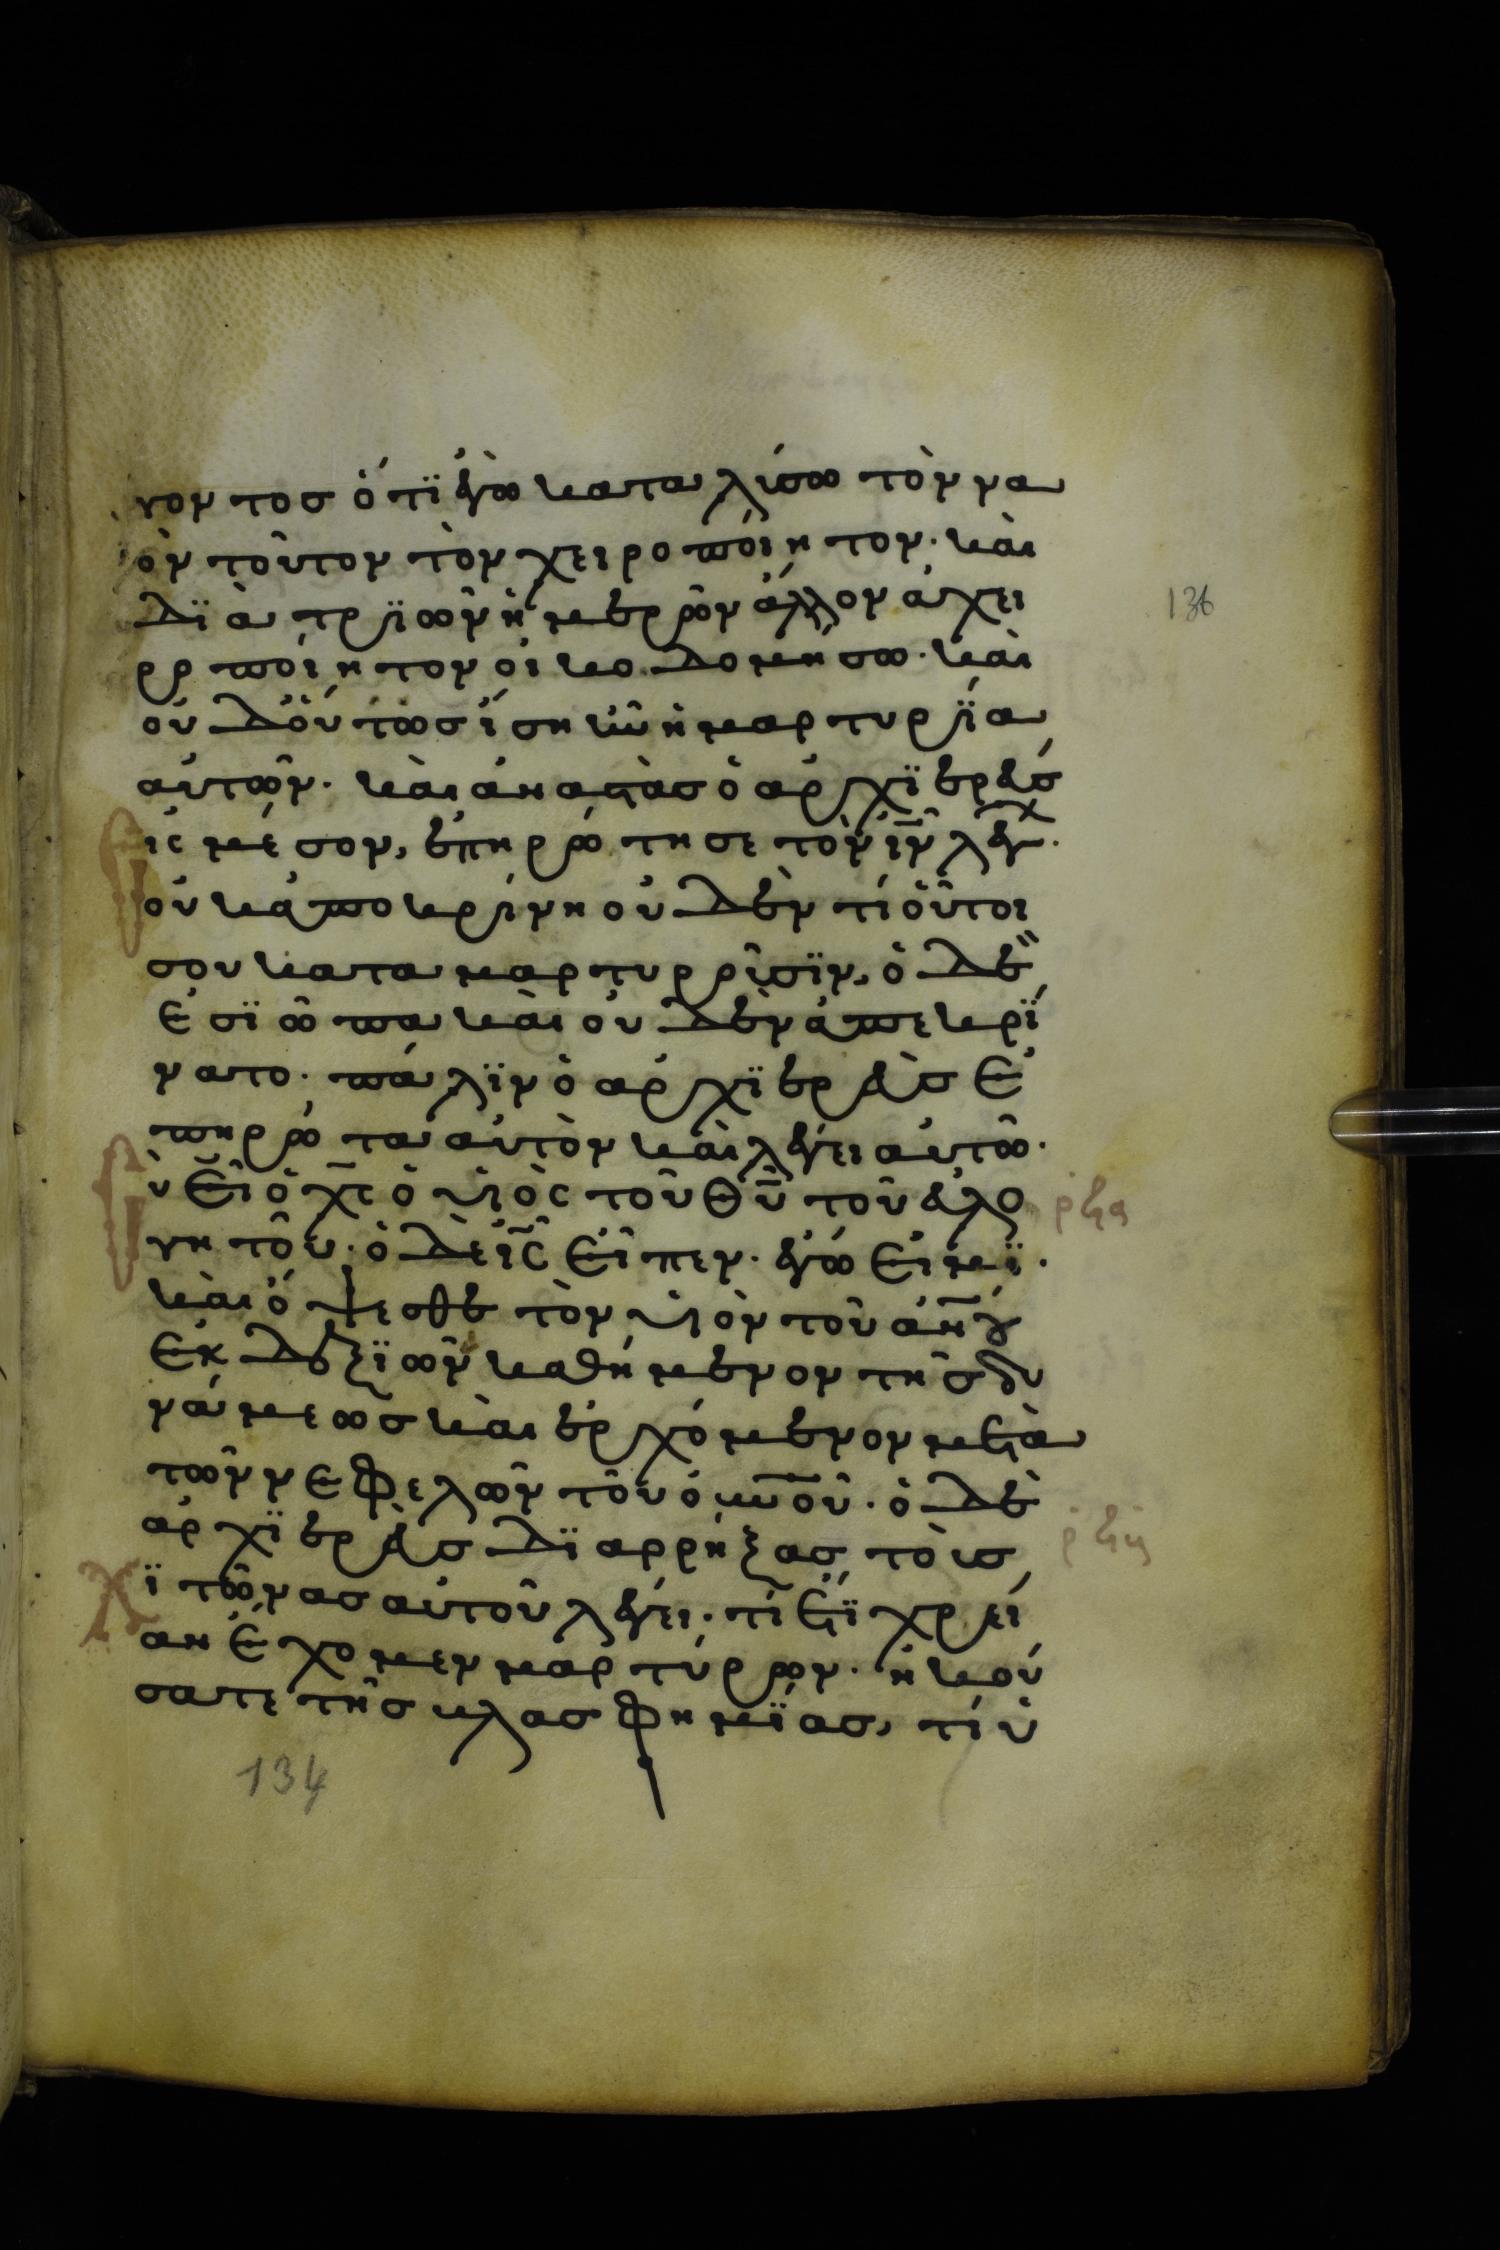 γοντος ὅτϊ ἐγὼ καταλύσω τὸν να
ὸν τοῦτον τὸν χειροποίητον· καὶ
δϊὰ τρϊῶν ἡμερῶν ἄλλον ἀχει
ροποίητον οἰκοδομήσω· καὶ
οὐδ οὕτως ἴση ἦν ἡ μαρτυρΐα
αὐτῶν· καὶ ἀναστὰς ὁ ἀρχϊερεύς
εἰς μέσον, ἐπηρώτησε τὸν ιν λέγων·
οὐκ ἀποκρίνη οὐδὲν τί οὗτοι
σου καταμαρτυροῦσϊν, ὁ δὲ
ἐσϊώπα καὶ οὐδὲν ἀπεκρΐ
νατο· πάλϊν ὁ ἀρχϊερεὺς ἐ
πηρώτα αὐτὸν καὶ λέγει αὐτῶ·
Σὺ εἶ ὁ χς ὁ υἱὸς τοῦ θυ τοῦ εὐλο
γητοῦ· ὁ δὲ ις εἶπεν· ἐγώ εἰμϊ·
καὶ ὄψεσθε τὸν υἱὸν τοῦ ἀνου
ἐκ δεξϊῶν καθήμενον τῆς δυ
νάμεως καὶ ἐρχόμενον μετὰ
τῶν νεφελῶν τοῦ οὐνου· ὁ δὲ
ἀρχϊερεὺς δϊαρρήξας τοὺς
χϊτῶνας αὐτοῦ λέγει· τί ἔτϊ χρεί
αν ἔχομεν μαρτύρων· ἠκού
σατε τῆς βλασφημΐας, τί ὑ
136
ρϟα
134